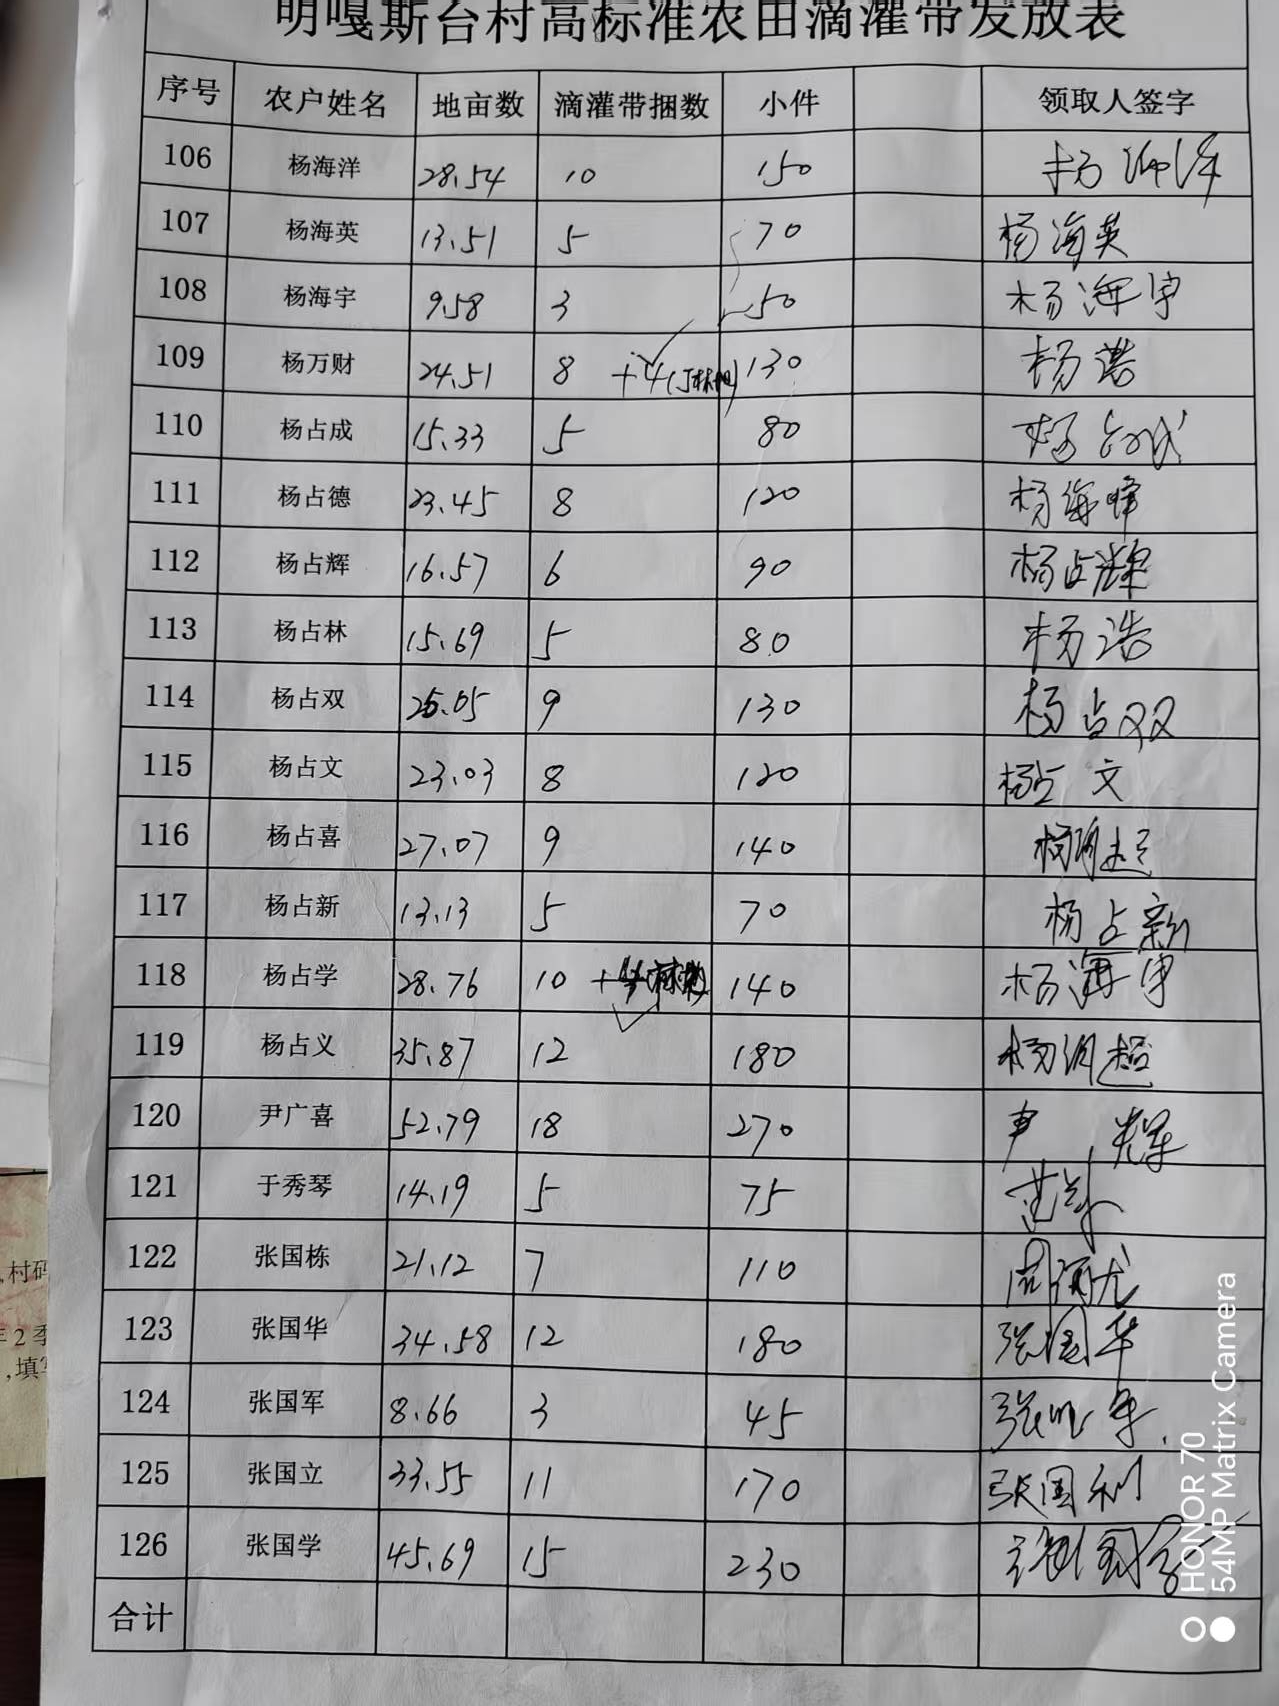 明嘎斯台村高标准农田滴灌带发放表
序号 农户姓名 地亩数 滴灌带捆数 小件 领取人签字
106 杨海洋 28.54 10 150 杨海洋
107 杨海英 13.51 5 70 杨海英
108 杨海宇 9.58 3 50 杨海宇
109 杨万财 24.51 8 +4 130 杨浩
110 杨占成 15.33 5 80 杨占成
111 杨占德 23.45 8 120 杨海峰
112 杨占辉 16.57 6 90 杨占辉
113 杨占林 15.69 5 80 杨浩
114 杨占双 26.05 9 130 杨占双
115 杨占文 23.03 8 120 杨占文
116 杨占喜 27.07 9 140
117 杨占新 13.13 5 70 杨占新
118 杨占学 28.76 10 140
119 杨占义 35.87 12 180
120 尹广喜 52.79 18 270 尹 辉
121 于秀琴 14.19 5 75
122 张国栋 21.12 7 110
123 张国华 34.58 12 180 张国华
124 张国军 8.66 3 45 张国军
125 张国立 33.55 11 170 张国利
126 张国学 45.69 15 230 张国学
合计
,村码
年2季
,填写
HONOR 70
54MP Matrix Camera